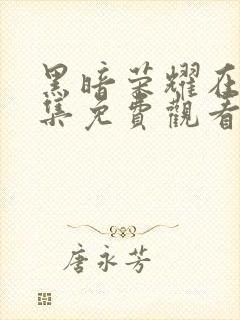 黑暗荣耀在
集免費觀看
唐永芳